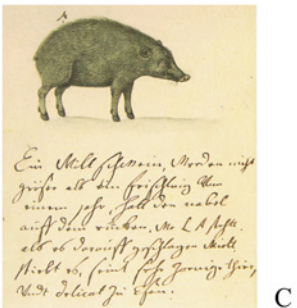 A
Ein Wildt schwein, Werden nicht
größer als ein frischling Von
einem jahr, hatt den nabel
auff dem rucken, Wo L A stehtt.
als es darauff geschlagen Wirdt
stirbt es, seint sehr zornige thier,
Vndt delicat zu eßen.
C